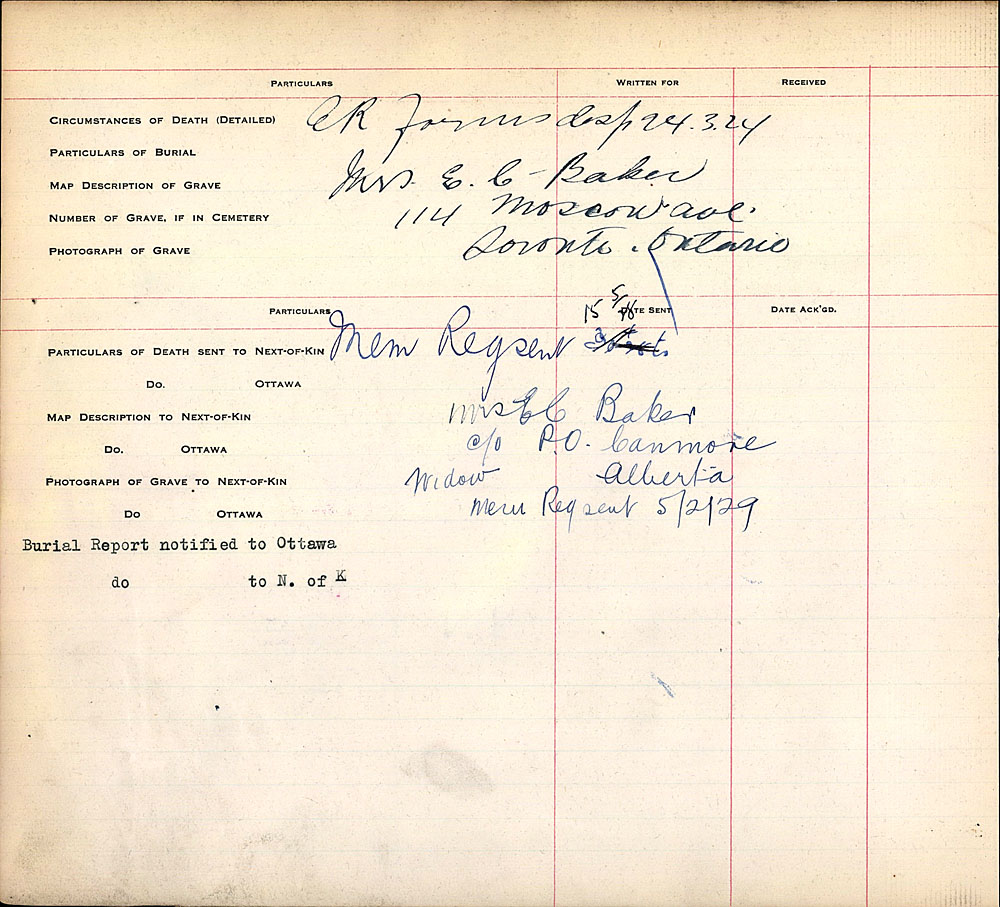 PARTICULARS WRITTEN FOR RECEIVED
CIRCUMSTANCES OF DEATH (DETAILED) CR forms desp 24.3.24
PARTICULARS OF BURIAL
MAP DESCRIPTION OF GRAVE Mrs. E. C - Baker
NUMBER OF GRAVE, IF IN CEMETERY 114 Moscow ave.
PHOTOGRAPH OF GRAVE Toronto. Ontario
PARTICULARS DATE SENT DATE ACK'GD.
15
PARTICULARS OF DEATH SENT TO NEXT-OF-KIN Mem Reg sent
DO. OTTAWA
MAP DESCRIPTION TO NEXT-OF-KIN Mrs E C Baker
DO. OTTAWA c/o P.O. Canmore
PHOTOGRAPH OF GRAVE TO NEXT-OF-KIN Widow Alberta
DO OTTAWA Mem Reg sent 5/2/29
Burial Report notified to Ottawa
do to N. of K